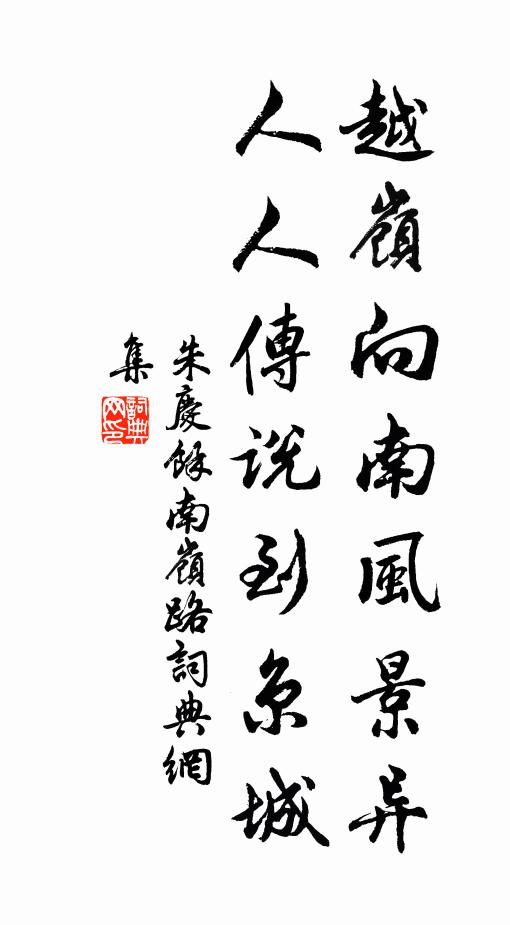 越嶺向南風景异
人人傳說到京城
朱慶餘南嶺路詞典網
集
詞典网印